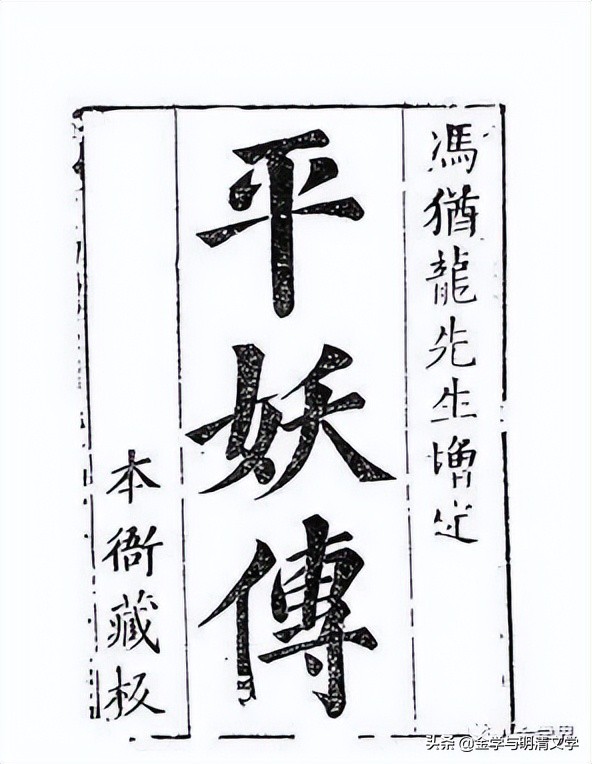 馮猶龍先生增定
平妖傳
本衙藏板
头条 @金学与明清文学